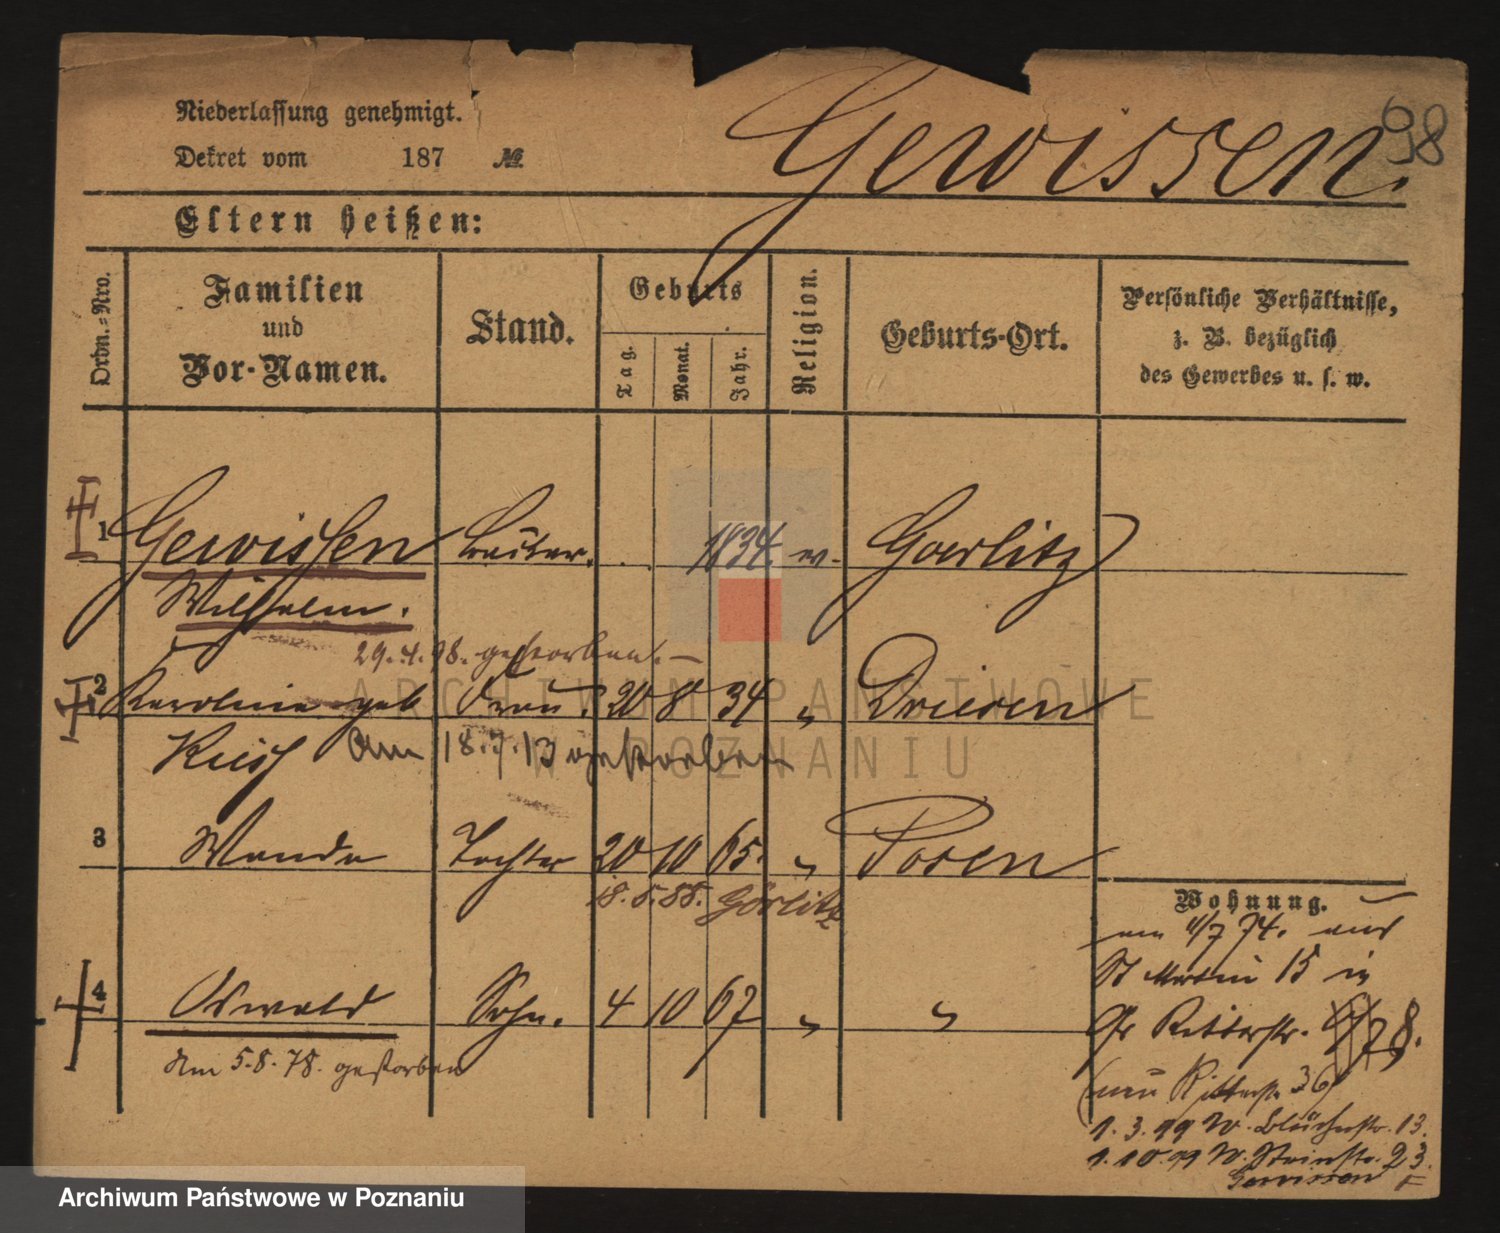 98
Niederlassung genehmigt.
Gewissen.
Dekret vom 187 №
Eltern heißen:
Ordn.-Nro.
Familien und Vor-Namen.
Stand.
Geburts
Tag.
Monat.
Jahr.
Religion.
Geburts-Ort.
Persönliche Verhältnisse,
z. B. bezüglich
des Gewerbes u. s. w.
1 Gewissen 1834. ev. Goerlitz
Wilhelm.
29.4.98. gestorben. —
2 Karoline geb Frau. 20 8 34 " Driesen
am 18.7.13 gestorben
3 Wanda Tochter 20 10 65. " Posen
18.5.88. Görlitz
4 Oswald Sohn. 4 10 67 " "
Am 5.8.78. gestorben
Wohnung.
am 4/7 74. aus
St Martin 15 in
Gr Ritterstr. 8.
(neu Ritterstr 36)
1.3.99 W. Blücherstr. 13.
1.10.99 W. Steinstr. 23.
Gewissen
ARCHIWUM PAŃSTWOWE
W POZNANIU
Archiwum Państwowe w Poznaniu